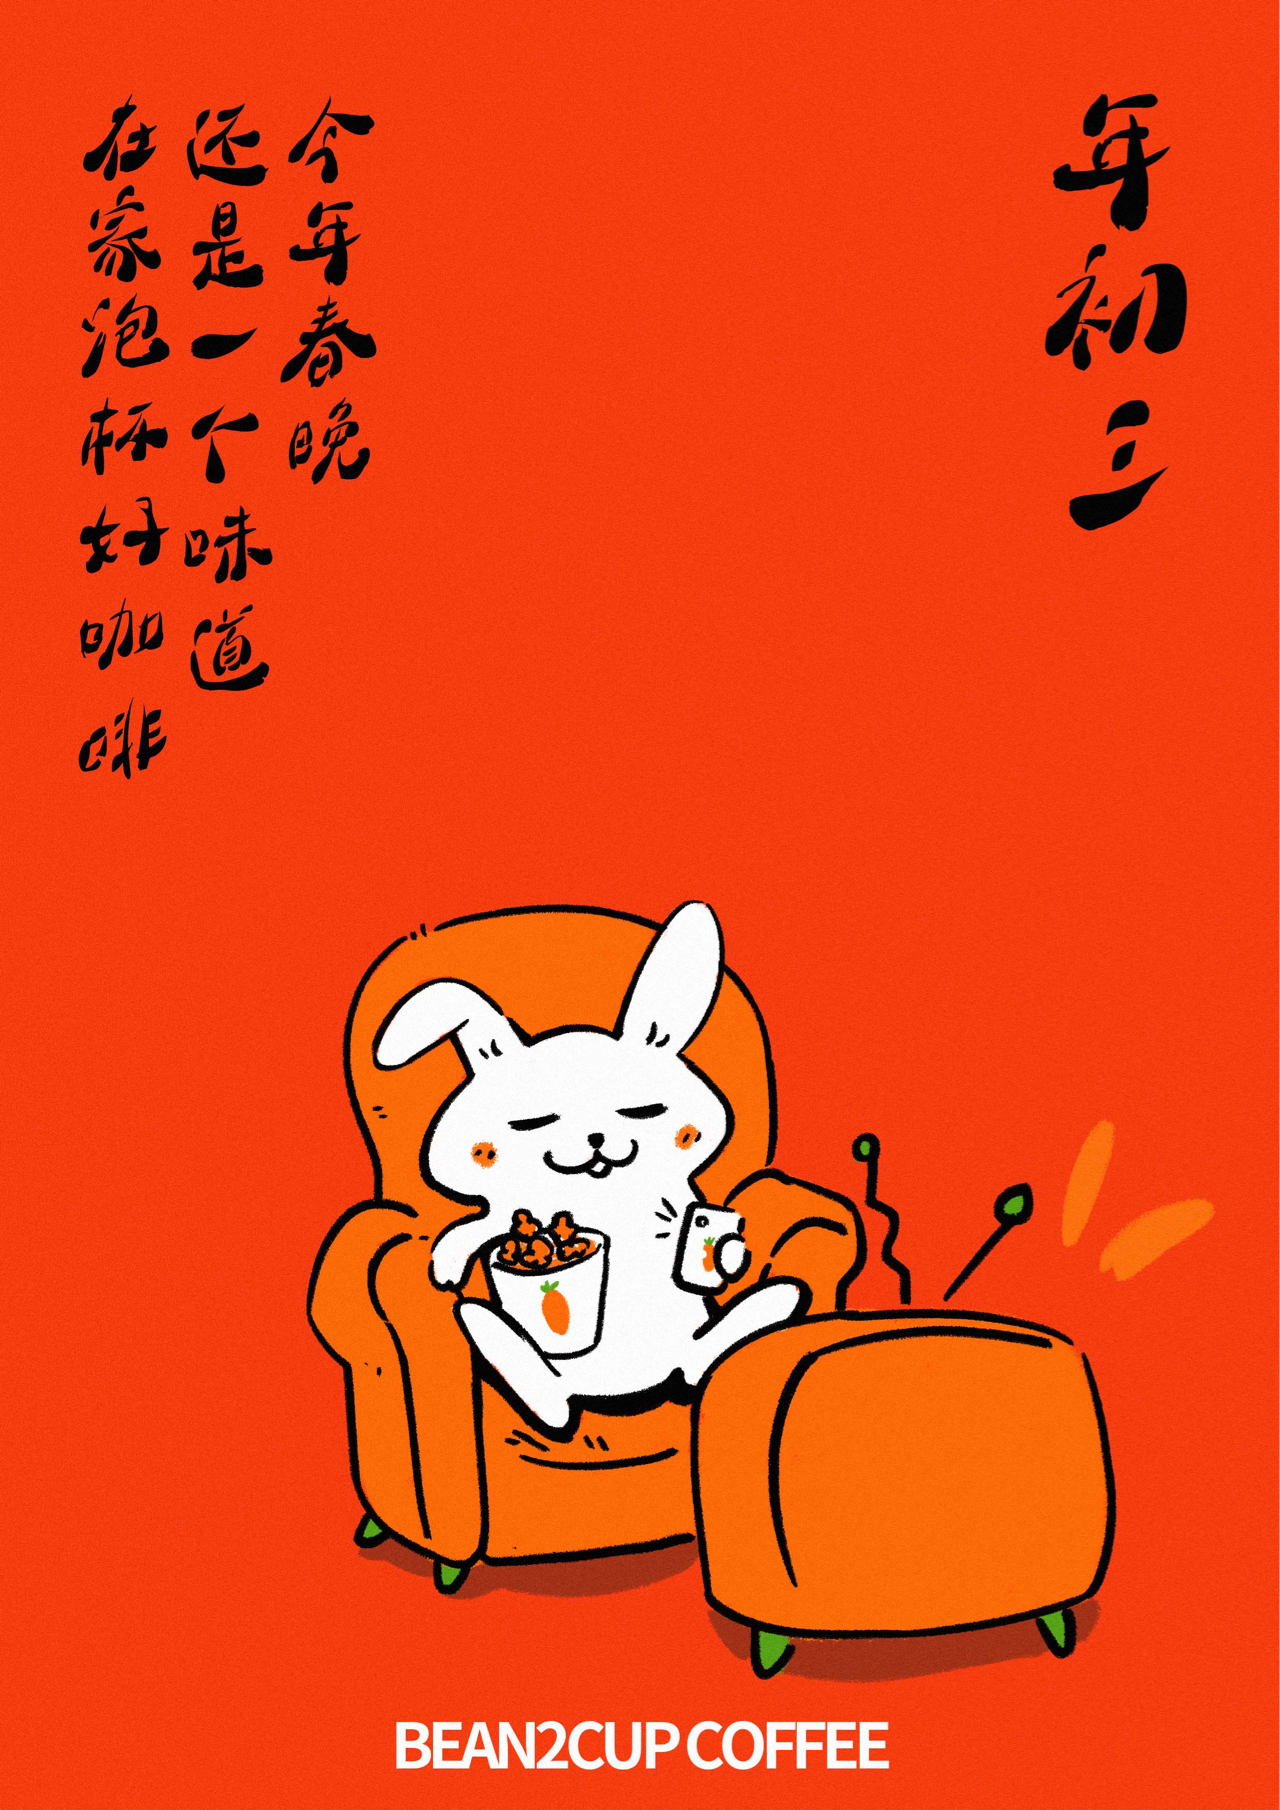 年初三
今年春晚
还是一个味道
在家泡杯好咖啡
BEAN2CUP COFFEE